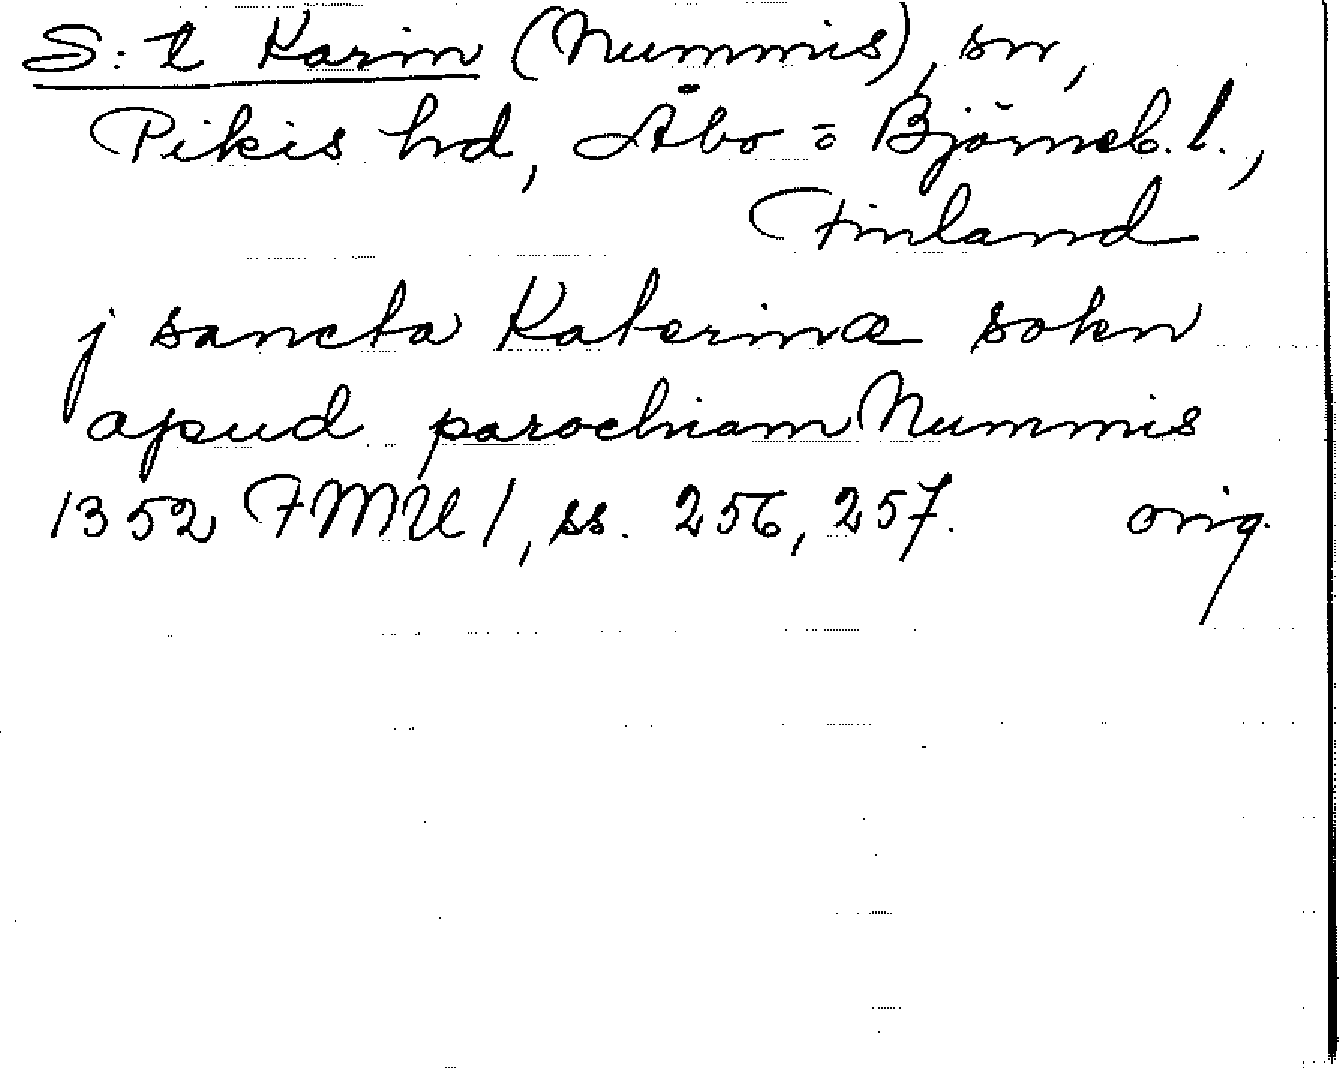 S:t Karin (Nummis), sn,
Pikis hd, Åbo o Björneb. l.,
Finland
j sancta Katerinæ sokn
apud parochiam Nummis
1352 FMU 1, ss. 256, 257. orig.